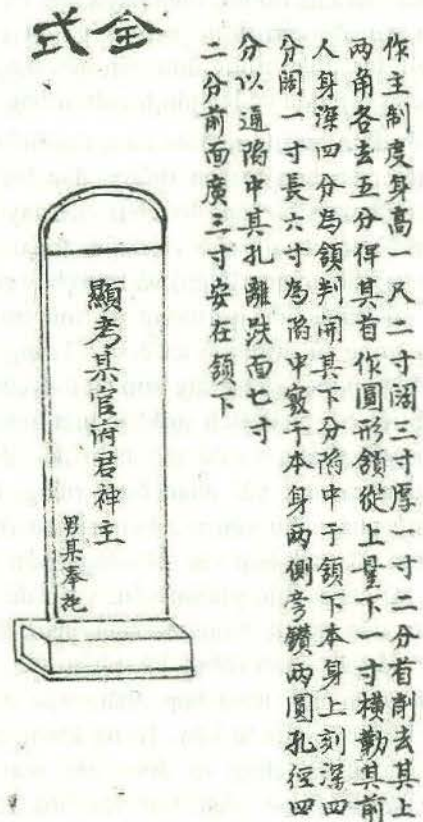 全式
作主制度身高一尺二寸闊三寸厚一寸二分首削去其上
両角各去五分俾其首作圓形頷從上量下一寸橫勒其前
人身深四分為頷判開其下分陷中于頷下本身上刻深四
分闊一寸長六寸為陷中竅于本身両側旁鑽両圓孔徑四
分以通陷中其孔離趺面七寸
二分前面廣三寸安在頷下
顯考某官府君神主
男某奉祀